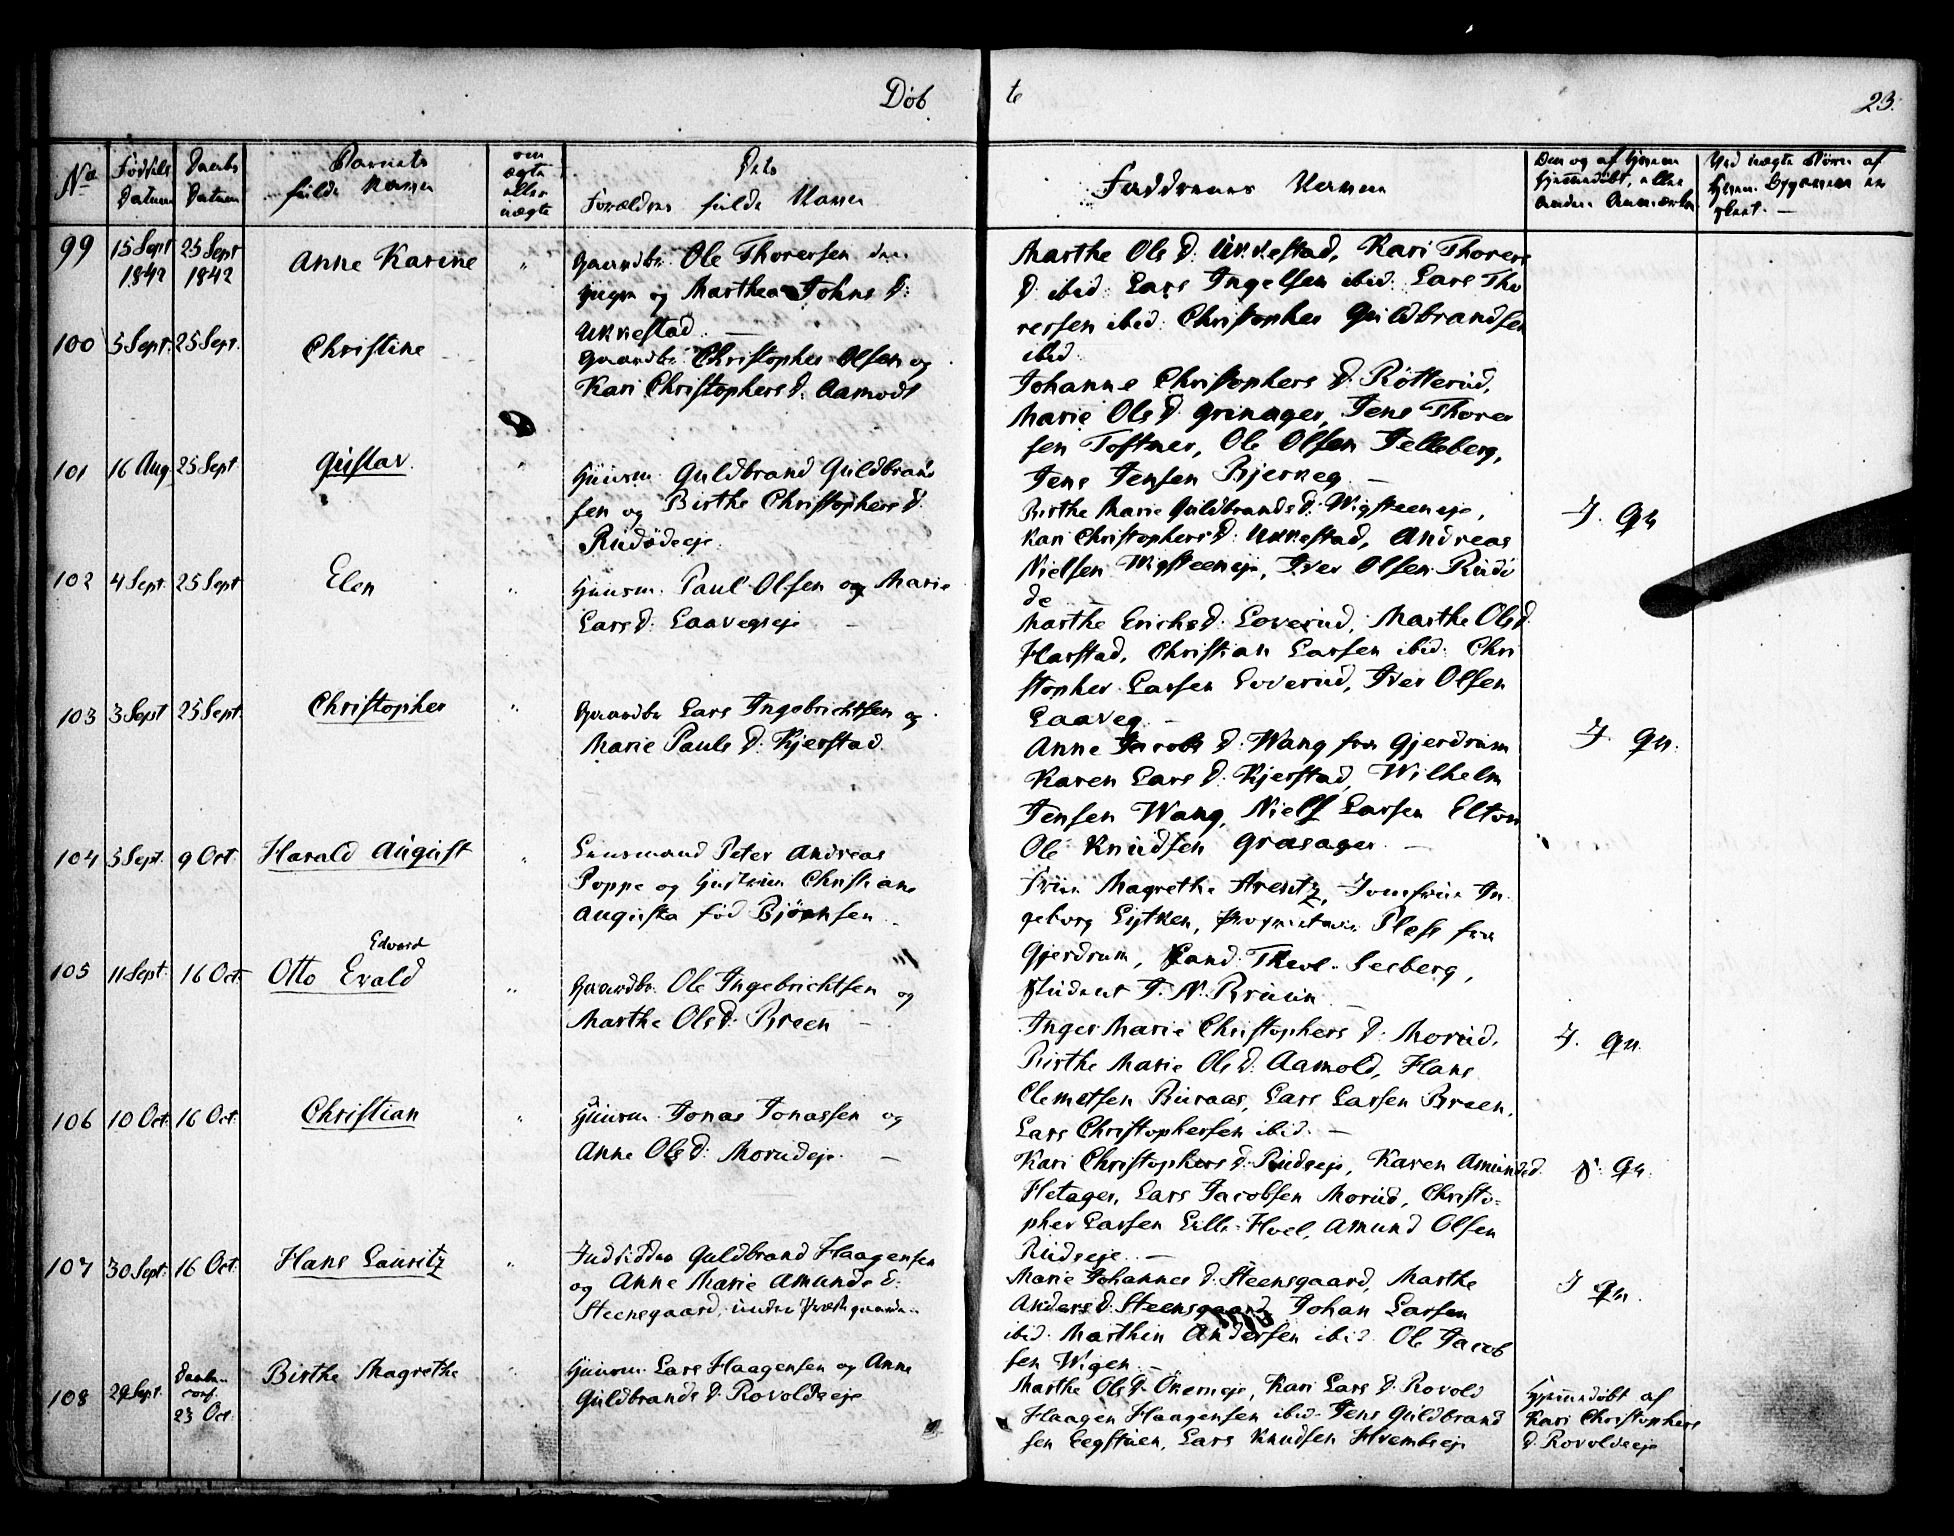 Døb te 23.
No
Fødsels Datum
Daabs Datum
Barnets fulde Navn
om ægte eller uægte
Dets Forældres fulde Navn
Faddernes Navne
99 15 Sept 1842 25 Sept 1842 Anne Karine " Gaardbr. Ole Thoresen
og Marthea Johns D.
Ukkestad. —
Marthe Ols D. Ukkestad, Kari Thores
D. ibid. Lars Ingelsen ibid. Lars Tho
resen ibid. Christopher Guldbrandsen
ibid.
100 5 Sept. 25 Sept. Christine
Gaardbr. Christopher Olsen og
Kari Christophers D. Aamodt
Johanne Christophers D. Rotterud,
Marie Ols D. Grinager, Jens Thore
sen Toftner, Ole Olsen Jelleberg,
Jens Jensen Bjerneg. —
101 16 Aug. 25 Sept. Gustav. "
Huusm. Guldbrand Guldbrand
sen og Birthe Christophers D.
Rudødeeje.
Birthe Marie Guldbrands D. Wigsteeneje,
Kari Christophers D. Ukkestad, Andreas
Nielsen Wigsteeneje, Iver Olsen Rudø
de —
102 4 Sept. 25 Sept. Elen "
Huusm. Paul Olsen og Marie
Lars D. Laavegseje —
Marthe Erichs D. Loverud, Marthe Ols D.
Harstad, Christian Larsen ibid. Chri
stopher Larsen Loverud, Iver Olsen
Laaveg. —
103 3 Sept 25 Sept. Christopher "
Gaardbr. Lars Ingebrichtsen og
Marie Pauls D. Kjerstad.
Anne Jacobs D. Wang fra Gjerdrum
Karen Lars D. Kjerstad, Wilhelm
Jensen Wang, Niels Larsen Elton
Ole Knudsen Grasager. —
104 5 Sept. 9 Oct. Harald August "
Lensmand Peter Andreas
Poppe og Hustru Christiane
Augusta fød Bjørnsen. —
Fru Magrethe Arentz, Jomfru In
geborg Lytken, Proprietair Plass fra
Gjerdrum, Cand. Theol. Seeberg,
Student J. N. Bruun —
105 11 Sept. 16 Oct. Otto Evald
Edvard
Gaardbr. Ole Ingebrichtsen og
Marthe Ols D. Breen —
Inger Marie Christophers D. Morud,
Birthe Marie Ols D. Aamold, Hans
Clemetsen Buraas, Lars Larsen Breen,
Lars Christophersen ibid. —
106 10 Oct. 16 Oct. Christian "
Huusm. Jonas Jonassen og
Anne Ols D. Morudeje. —
Kari Christophers D. Rudseje, Karen Amunds D.
Hetager, Lars Jacobsen Morud, Christo-
pher Larsen Lille-Hoel, Amund Olsen
Rudseje. —
107 30 Sept. 16 Oct. Hans Lauritz "
Inds. Guldbrand Haagensen
og Anne Marie Amunds D.
Steensgaard, under Præstegaarden
Marie Johannes D. Steensgaard, Marthe
Anders D. Steensgaard Johan Larsen
ibid. Marthin Andersen ibid. Ole Jacob
sen Wigen. —
108 29 Sept. Daaben conf. 23 Oct. Birthe Magrethe "
Huusm. Lars Haagensen og Anne
Guldbrands D. Rovoldseje
Marthe Ols D. Ønemeje, Kari Lars D. Rovold
Haagen Haagensen ibid. Jens Guldbrand
sen Eegstuen, Lars Knudsen Hvembseje
Hjemmedøbt af
Kari Christophers
D. Rovoldseeje